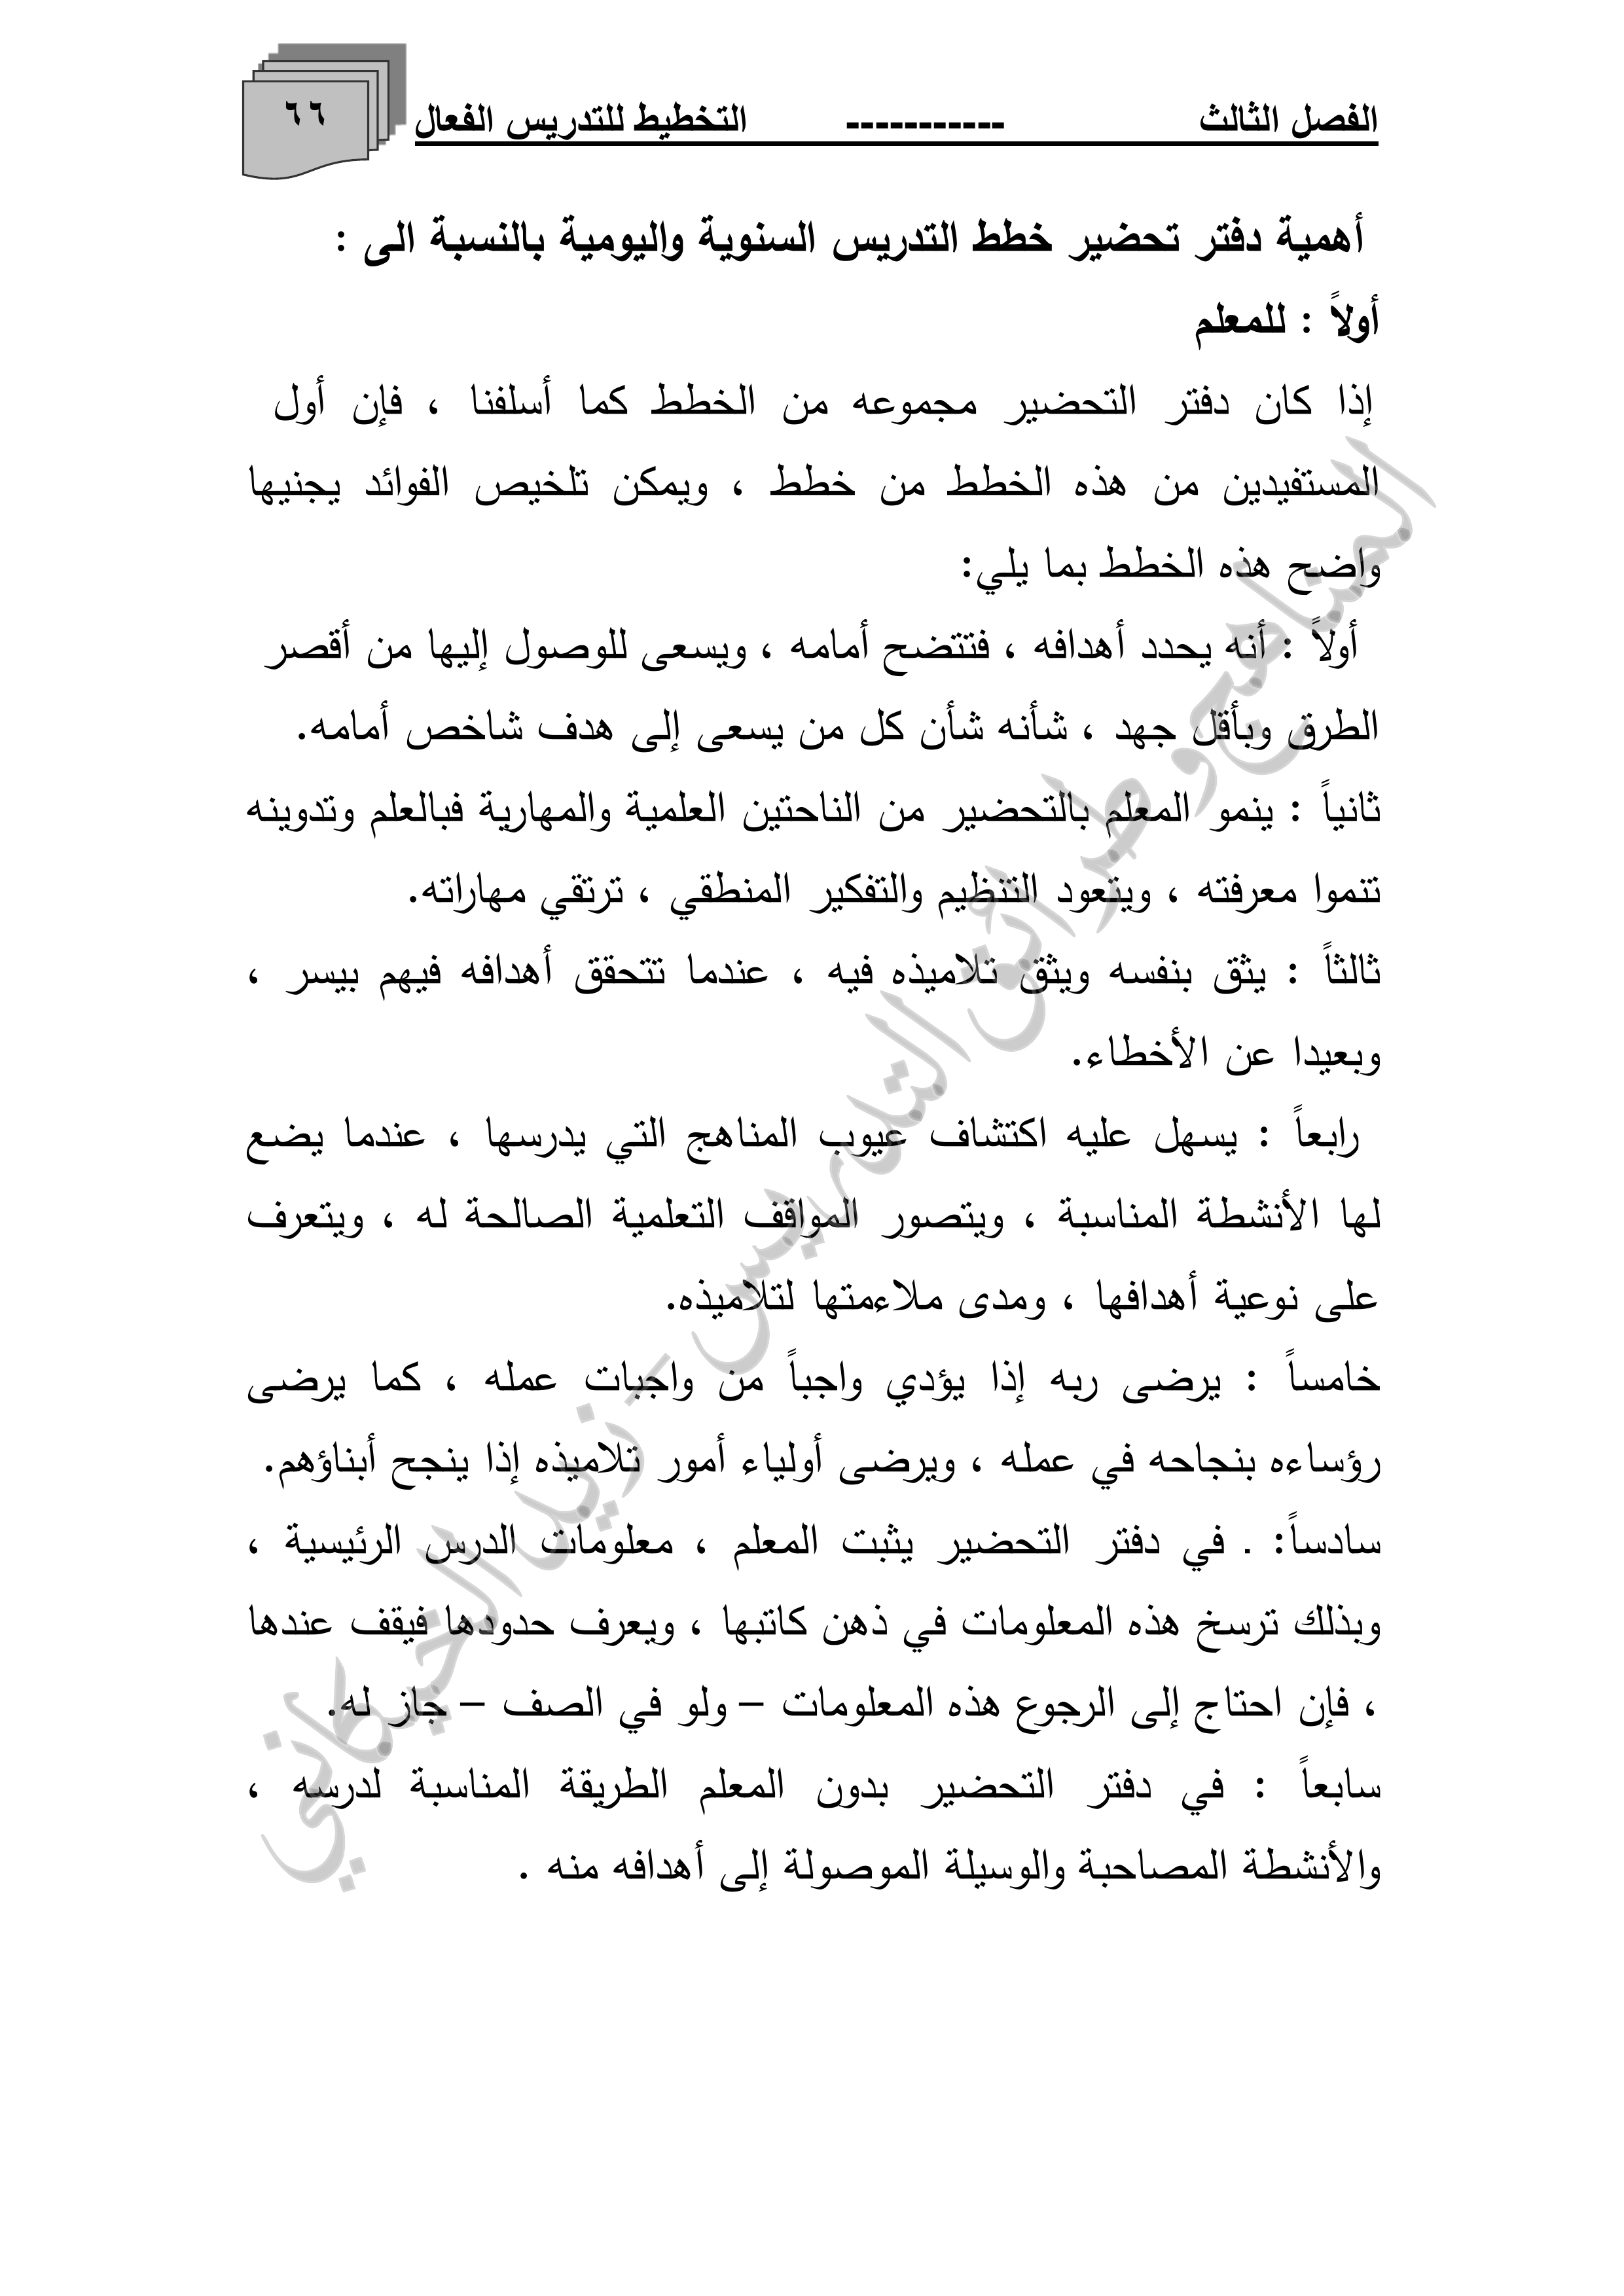 الفصل الثالث ----------- التخطيط للتدريس الفعال ٦٦
أهمية دفتر تحضير خطط التدريس السنوية واليومية بالنسبة الى :
أولاً : للمعلم
إذا كان دفتر التحضير مجموعه من الخطط كما أسلفنا ، فإن أول
المستفيدين من هذه الخطط من خطط ، ويمكن تلخيص الفوائد يجنيها
واضح هذه الخطط بما يلي:
أولاً : أنه يحدد أهدافه ، فتتضح أمامه ، ويسعى للوصول إليها من أقصر
الطرق وبأقل جهد ، شأنه شأن كل من يسعى إلى هدف شاخص أمامه.
ثانياً : ينمو المعلم بالتحضير من الناحتين العلمية والمهارية فبالعلم وتدوينه
تنموا معرفته ، ويتعود التنظيم والتفكير المنطقي ، ترتقي مهاراته.
ثالثاً : يثق بنفسه ويثق تلاميذه فيه ، عندما تتحقق أهدافه فيهم بيسر ،
وبعيدا عن الأخطاء.
رابعاً : يسهل عليه اكتشاف عيوب المناهج التي يدرسها ، عندما يضع
لها الأنشطة المناسبة ، ويتصور المواقف التعلمية الصالحة له ، ويتعرف
على نوعية أهدافها ، ومدى ملاءمتها لتلاميذه.
خامساً : يرضى ربه إذا يؤدي واجباً من واجبات عمله ، كما يرضى
رؤساءه بنجاحه في عمله ، ويرضى أولياء أمور تلاميذه إذا ينجح أبناؤهم.
سادساً: ـ في دفتر التحضير يثبت المعلم ، معلومات الدرس الرئيسية ،
وبذلك ترسخ هذه المعلومات في ذهن كاتبها ، ويعرف حدودها فيقف عندها
، فإن احتاج إلى الرجوع هذه المعلومات – ولو في الصف – جاز له.
سابعاً : في دفتر التحضير بدون المعلم الطريقة المناسبة لدرسه ،
والأنشطة المصاحبة والوسيلة الموصولة إلى أهدافه منه .
المناهج وطرائق التدريس - زيد الخيكاني